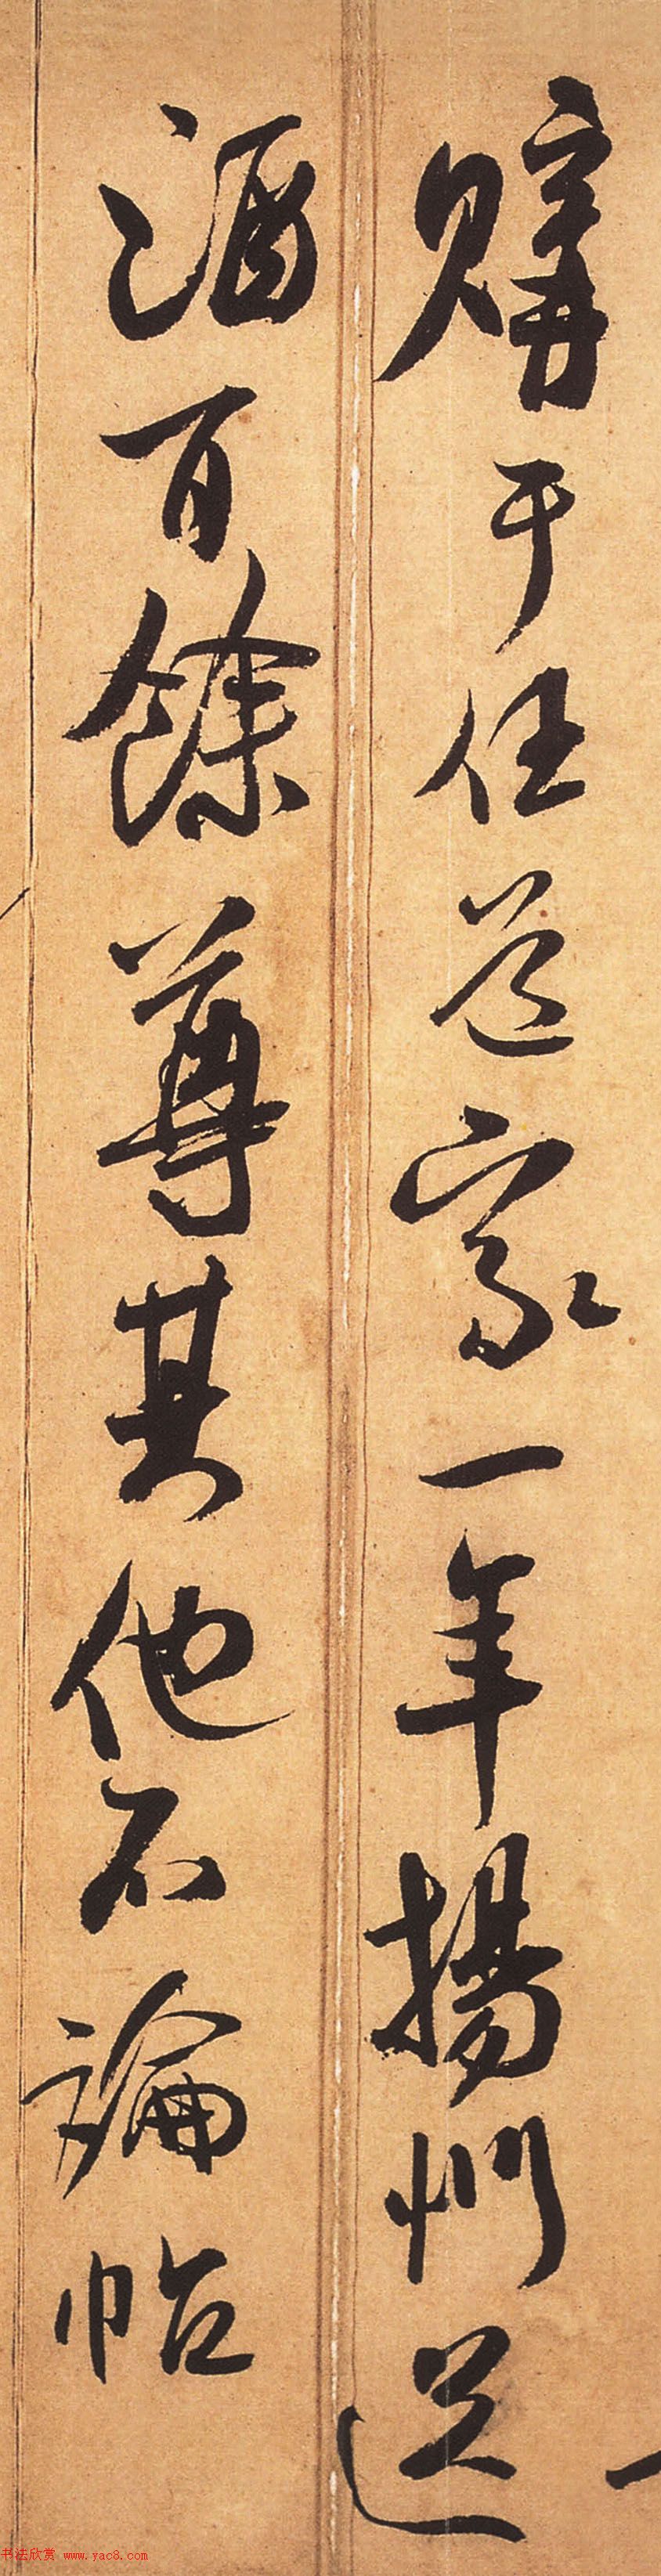 購于任道家一年揚州送
酒百餘尊其他不論帖
书法欣赏 www.yac8.com